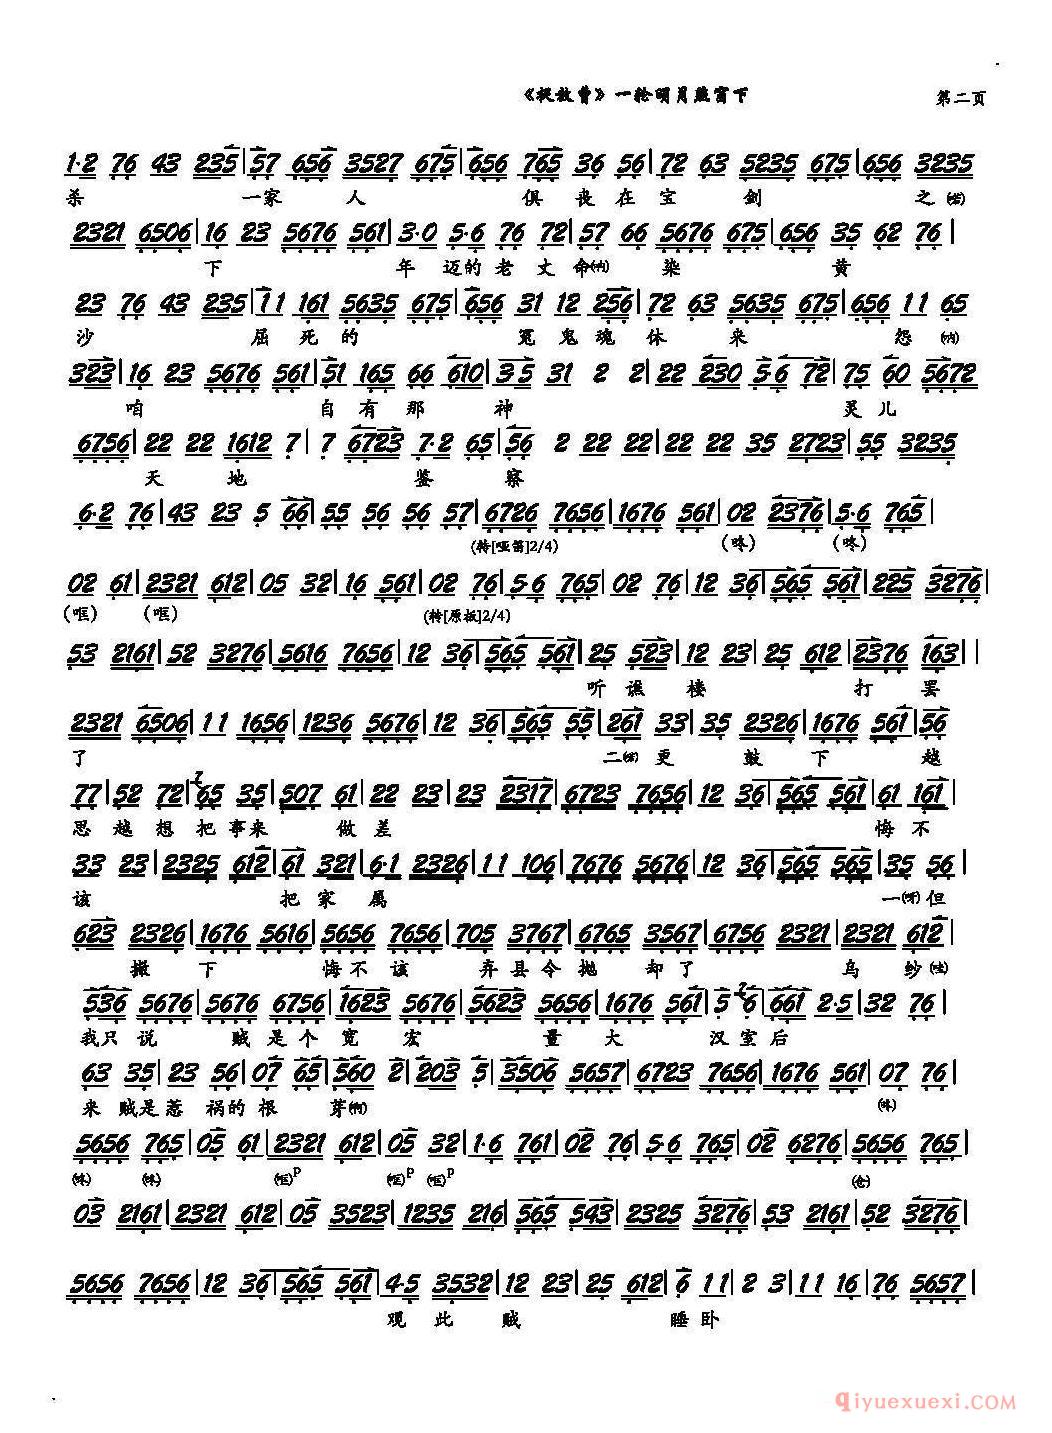 《捉放曹》一轮明月照窗下 第二页
1·2 76 43 235|57 656 3527 675|656 765 36 56|72 63 5235 675|656 3235
杀 一家 人 俱 丧 在 宝 剑 之
2321 6506|16 23 5676 561|3·0 5·6 76 72|57 66 5676 675|656 35 62 76|
下 年 迈的 老 丈 命(内) 染 黄
23 76 43 235|11 161 5635 675|656 31 12 256|72 63 5635 675|656 11 65
沙 屈 死 的 冤 鬼 魂 休 来 怨 (内)
323|16 23 5676 561|51 165 66 610|35 31 2 2|22 230 5·6 72|75 60 5672
咱 自 有 那 神 灵 儿
6756|22 22 1612 7|7 6723 7·2 65|56 2 22 22|22 22 35 2723|55 3235
天 地 鉴 察
6·2 76|43 23 5 66|55 56 56 57|6726 7656|1676 561|02 2376|5·6 765|
(转[哑笛]2/4) (咚) (咚)
02 61|2321 612|05 32|16 561|02 76|5·6 765|02 76|12 36|565 561|225 3276|
(哐) (哐) (转[原板]2/4)
53 2161|52 3276|5616 7656|12 36|565 561|25 523|12 23|25 612|2376 163|
听 谯 楼 打 罢
2321 6506|11 1656|1236 5676|12 36|565 55|261 33|35 2326|1676 561|56
了 二 更 鼓 下 越
77|52 72|65 35|507 61|22 23|23 2317|6723 7656|12 36|565 561|61 161|
思 越 想 把 事来 做 差 悔 不
33 23|2325 612|61 321|6·1 2326|11 106|7676 5676|12 36|565 565|35 56|
该 把 家 属 一(呀)但
623 2326|1676 5616|5656 7656|705 3767|6765 3567|6756 2321|2321 612|
搬 下 悔 不 该 弃 县 令 抛 却 了 乌 纱
536 5676|5676 6756|1623 5676|5623 5656|1676 561|5 6|661 2·5|32 76|
我只 说 贼 是 个 宽 宏 量 大 汉 室 后
63 35|23 56|07 65|560 2|203 5|3506 5657|6723 7656|1676 561|07 76|
来 贼 是 惹 祸 的 根 芽 (咚)
5656 765|05 61|2321 612|05 32|1·6 761|02 76|5·6 765|02 6276|5656 765|
(咚) (咚) (哐)P (哐)P (哐)P (仓)
03 2161|2321 612|05 3523|1235 216|565 543|2325 3276|53 2161|52 3276|
5656 7656|12 36|565 561|4·5 3532|12 23|25 612|6 11|2 3|11 16|76 5657|
观 此 贼 睡 卧
qiyuexuexi.COM